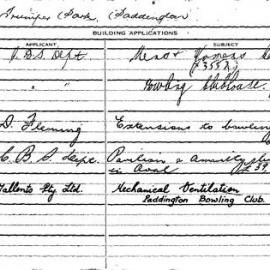 Trumper Park, Paddington
BUILDING APPLICATIONS
APPLICANT
SUBJECT
Dept
Bowling Clubhouse
D. Fleming
Extensions to bowling
C. B. S. Dept.
Pavilion & Amenity
in Oval
Tallents Pty. Ltd.
Mechanical Ventilation
Paddington Bowling Club.